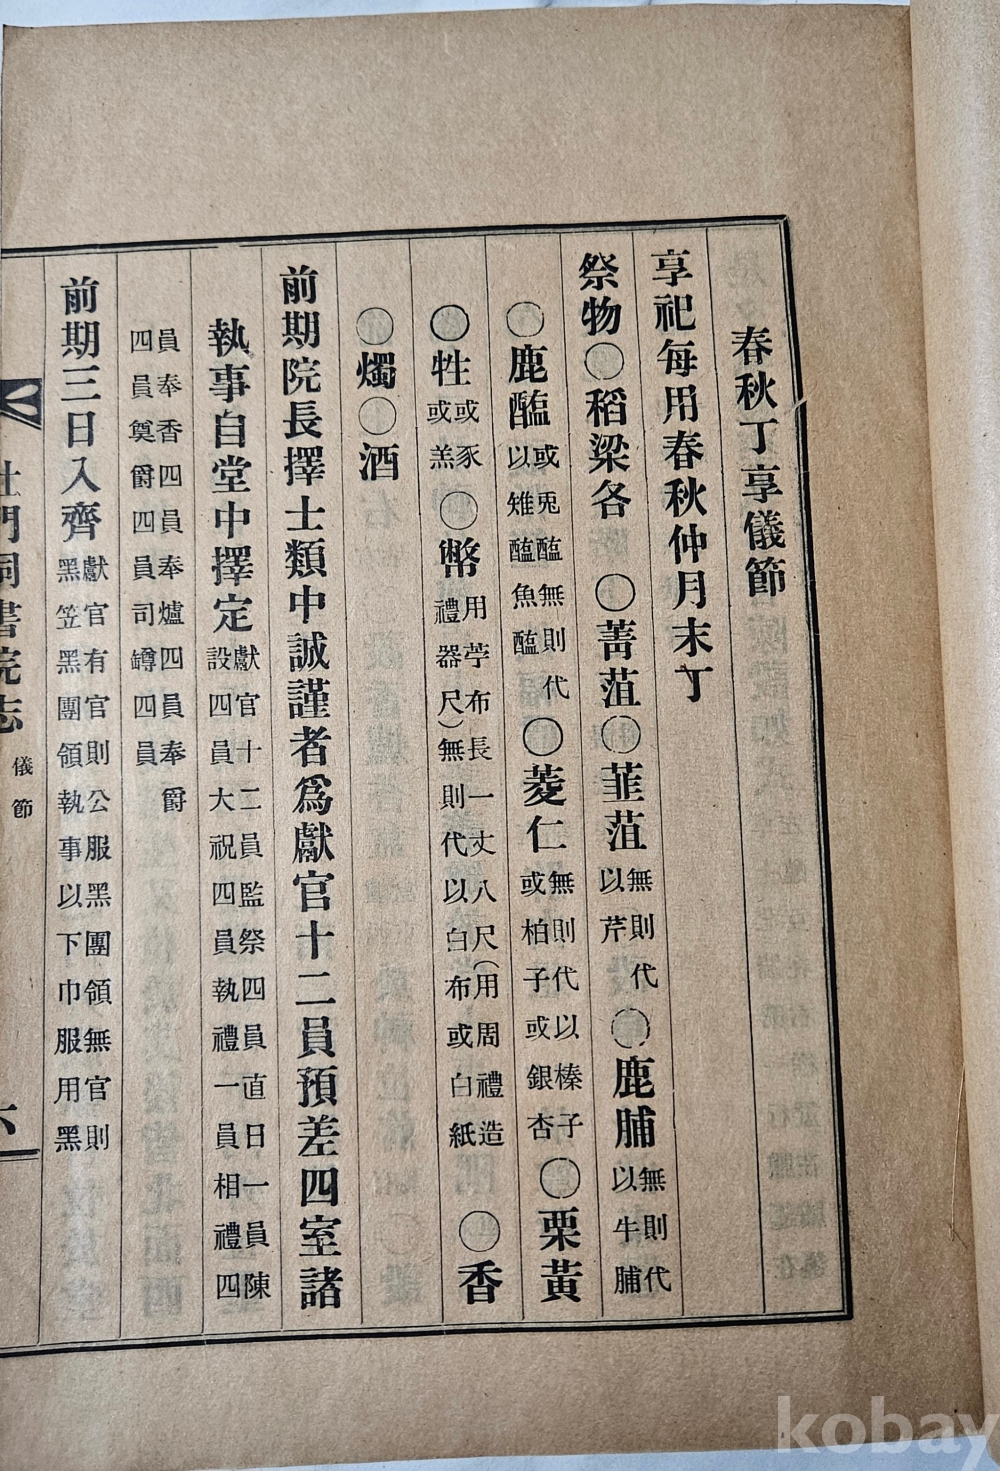 春秋丁享儀節
享祀每用春秋仲月末丁
祭物〇稻梁各〇菁菹〇韮菹無則代以芹〇鹿脯無則代以牛脯
〇鹿醢或兎醢無則代以雉醢魚醢〇菱仁無則代以榛子或柏子或銀杏〇栗黃
〇牲或豕或羔〇幣用苧布長一丈八尺(用周禮造禮器尺)無則代以白布或白紙〇香
〇燭〇酒
前期院長擇士類中誠謹者爲獻官十二員預差四室諸
執事自堂中擇定獻官十二員監祭四員直日一員陳設四員大祝四員執禮一員相禮四
員奉香四員奉爐四員奉爵四員奠爵四員司罇四員
前期三日入齊獻官有官則公服黑團領無官則黑笠黑團領執事以下巾服用黑
杜門洞書院志 儀節 六
kobay